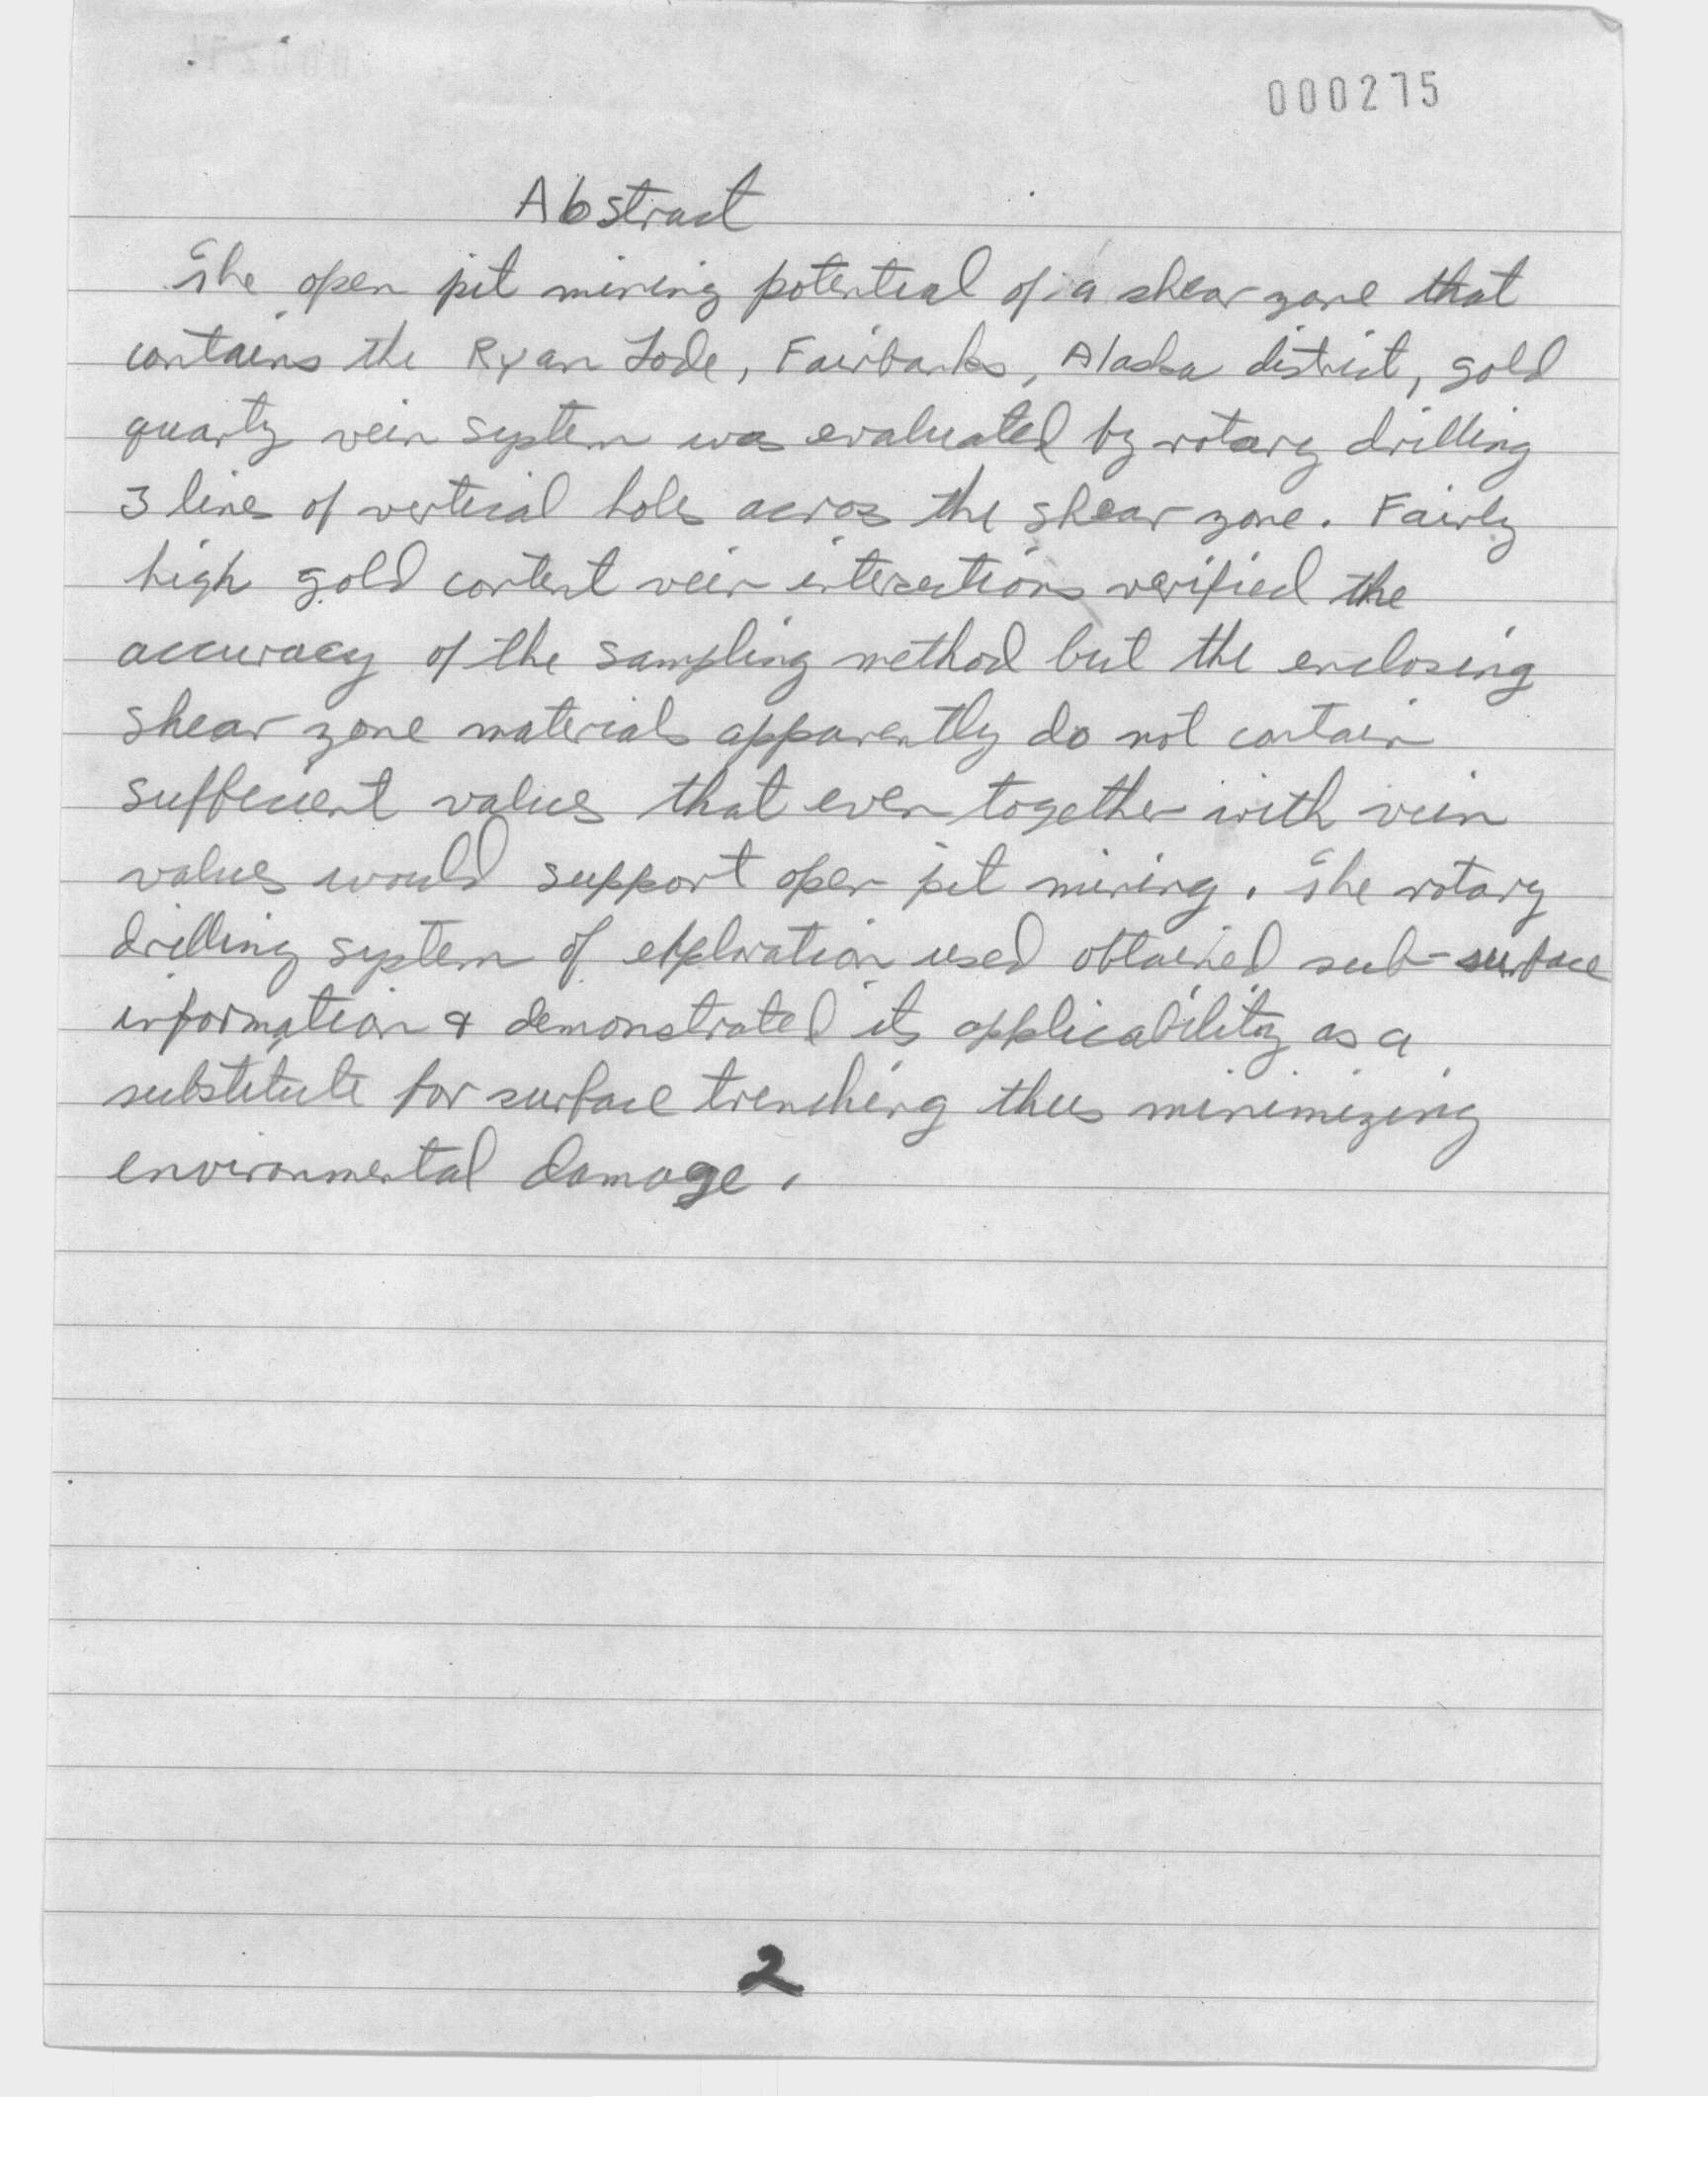 000275
Abstract
The open pit mining potential of a shear zone that
contains the Ryan Lode, Fairbanks, Alaska district, gold
quartz vein system was evaluated by rotary drilling
3 lines of vertical holes across the shear zone. Fairly
high gold content vein intersections verified the
accuracy of the sampling method but the enclosing
shear zone materials apparently do not contain
sufficient values that even together with vein
values would support open pit mining. The rotary
drilling system of exploration used obtained sub-surface
information & demonstrated its applicability as a
substitute for surface trenching thus minimizing
environmental damage.
2